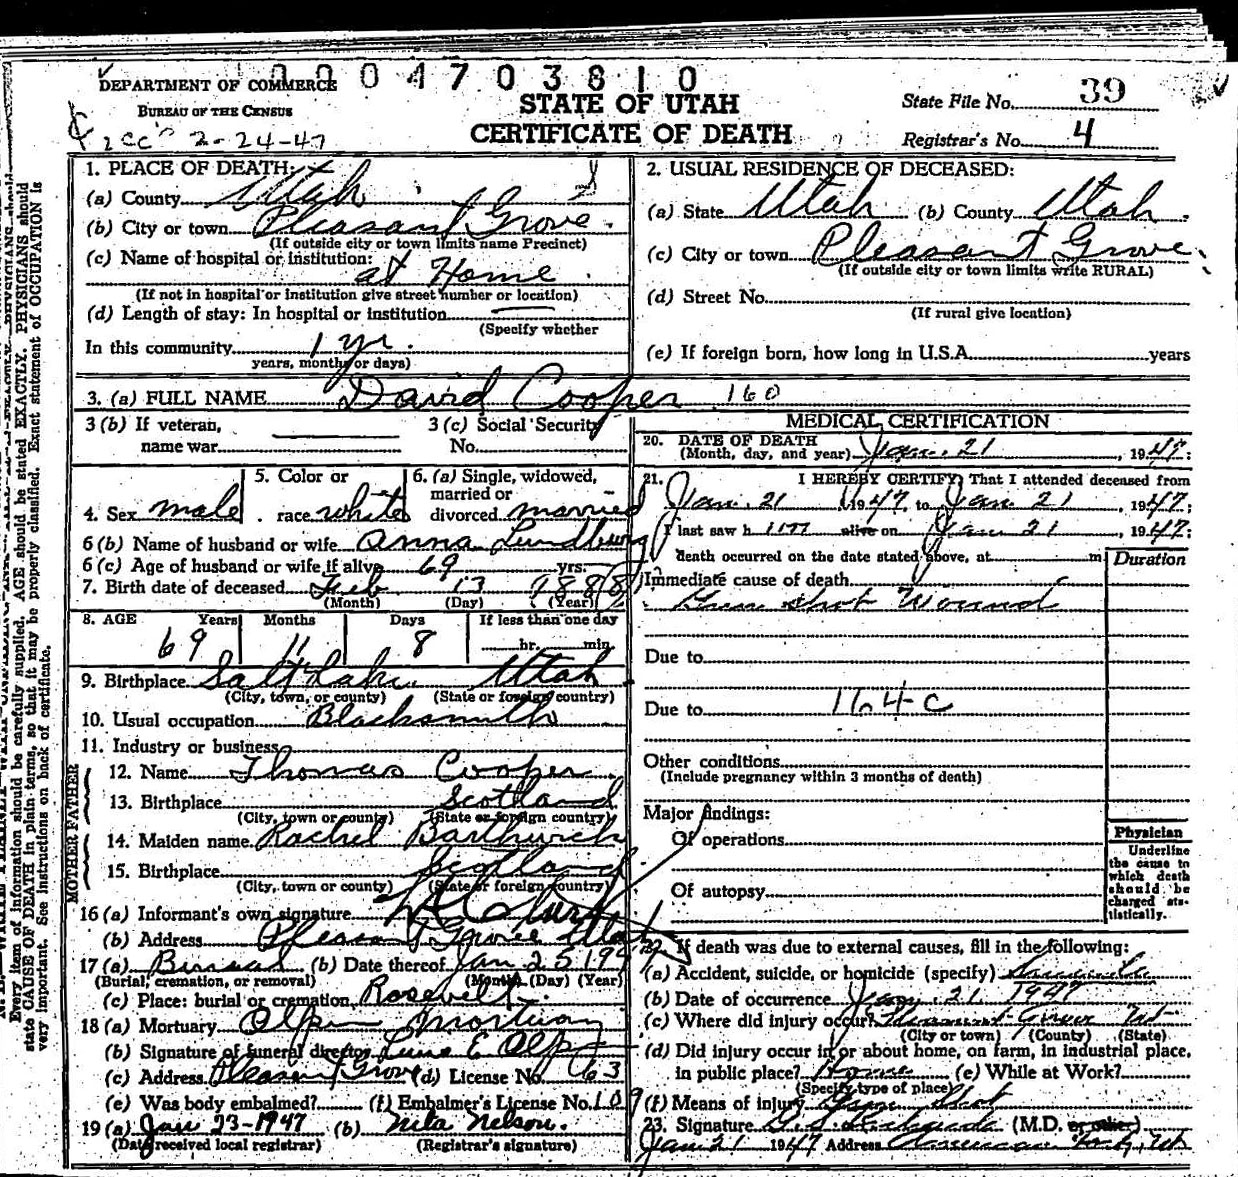 0004703810
DEPARTMENT OF COMMERCE
BUREAU OF THE CENSUS
2 CC's 2-24-47
STATE OF UTAH
CERTIFICATE OF DEATH
State File No. 39
Registrar's No. 4
1. PLACE OF DEATH:
(a) County Utah
(b) City or town Pleasant Grove.
(If outside city or town limits name Precinct)
(c) Name of hospital or institution:
at Home
(If not in hospital or institution give street number or location)
(d) Length of stay: In hospital or institution
(Specify whether
In this community 1 yr.
years, months or days)
2. USUAL RESIDENCE OF DECEASED:
(a) State Utah (b) County Utah
(c) City or town Pleasant Grove
(If outside city or town limits write RURAL)
(d) Street No.
(If rural give location)
(e) If foreign born, how long in U.S.A. years
3. (a) FULL NAME David Cooper 160
3 (b) If veteran,
name war
3 (c) Social Security
No.
4. Sex male
5. Color or
race white
6. (a) Single, widowed,
married or
divorced married
6 (b) Name of husband or wife Anna Lundburg
6 (c) Age of husband or wife if alive 69 yrs.
7. Birth date of deceased Feb 13
(Month) (Day) (Year)
8. AGE Years Months Days If less than one day
69 11 8 hr. min.
9. Birthplace Salt Lake Utah
(City, town, or county) (State or foreign country)
10. Usual occupation Blacksmith
11. Industry or business
FATHER
12. Name Thomas Cooper
13. Birthplace Scotland
(City, town or county) (State or foreign country)
MOTHER
14. Maiden name Rachel
15. Birthplace Scotland
(City, town or county) (State or foreign country)
16 (a) Informant's own signature
(b) Address Pleasant Grove Utah
17 (a) Burial (b) Date thereof Jan 25
(Burial, cremation, or removal) (Month) (Day) (Year)
(c) Place: burial or cremation Rosevelt
18 (a) Mortuary Olpin Mortuary
(b) Signature of funeral director
(c) Address Pleasant Grove (d) License No.
(e) Was body embalmed? (f) Embalmer's License No. 109
19 (a) Jan 23-1947 (b) Nita Nelson.
(Date received local registrar) (Registrar's signature)
MEDICAL CERTIFICATION
20. DATE OF DEATH
(Month, day, and year) Jan. 21, 1947:
21. I HEREBY CERTIFY, That I attended deceased from
Jan. 21 1947, to Jan 21, 1947;
I last saw him alive on Jan 21, 1947:
death occurred on the date stated above, at m
Duration
Immediate cause of death
Gun shot Wound
Due to
Due to 164c
Other conditions
(Include pregnancy within 3 months of death)
Major findings:
Of operations
Of autopsy
Physician
Underline
the cause to
which death
should be
charged sta-
tistically.
22. If death was due to external causes, fill in the following:
(a) Accident, suicide, or homicide (specify)
(b) Date of occurrence Jan. 21 1947
(c) Where did injury occur? Pleasant Grove Ut
(City or town) (County) (State)
(d) Did injury occur in or about home, on farm, in industrial place,
in public place? Home (e) While at Work?
(Specify type of place)
(f) Means of injury Gun Shot
23. Signature (M.D. or other)
Jan 21 1947 Address American Fork, Ut
Every item of information should be carefully supplied. AGE should be stated EXACTLY. PHYSICIANS should
state CAUSE OF DEATH in plain terms, so that it may be properly classified. Exact statement of OCCUPATION is
very important. See instructions on back of certificate.